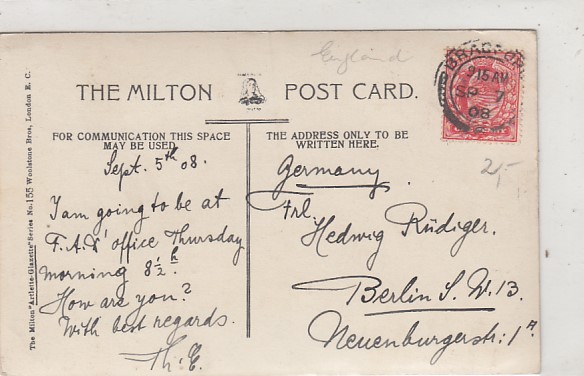 England
THE MILTON POST CARD.
BRADFORD
915 AM
SP 7
08
FOR COMMUNICATION THIS SPACE
MAY BE USED
THE ADDRESS ONLY TO BE
WRITTEN HERE.
Sept. 5th 08.
I am going to be at
office Thursday
morning 8½ h.
How are you?
With best regards.
Th. E.
Germany
Frl.
Hedwig Rüdiger.
Berlin S.W. 13.
Neuenburgerstr. 1
2,-
The Milton "Artlette-Glazette" Series No. 155 Woolstone Bros, London E. C.